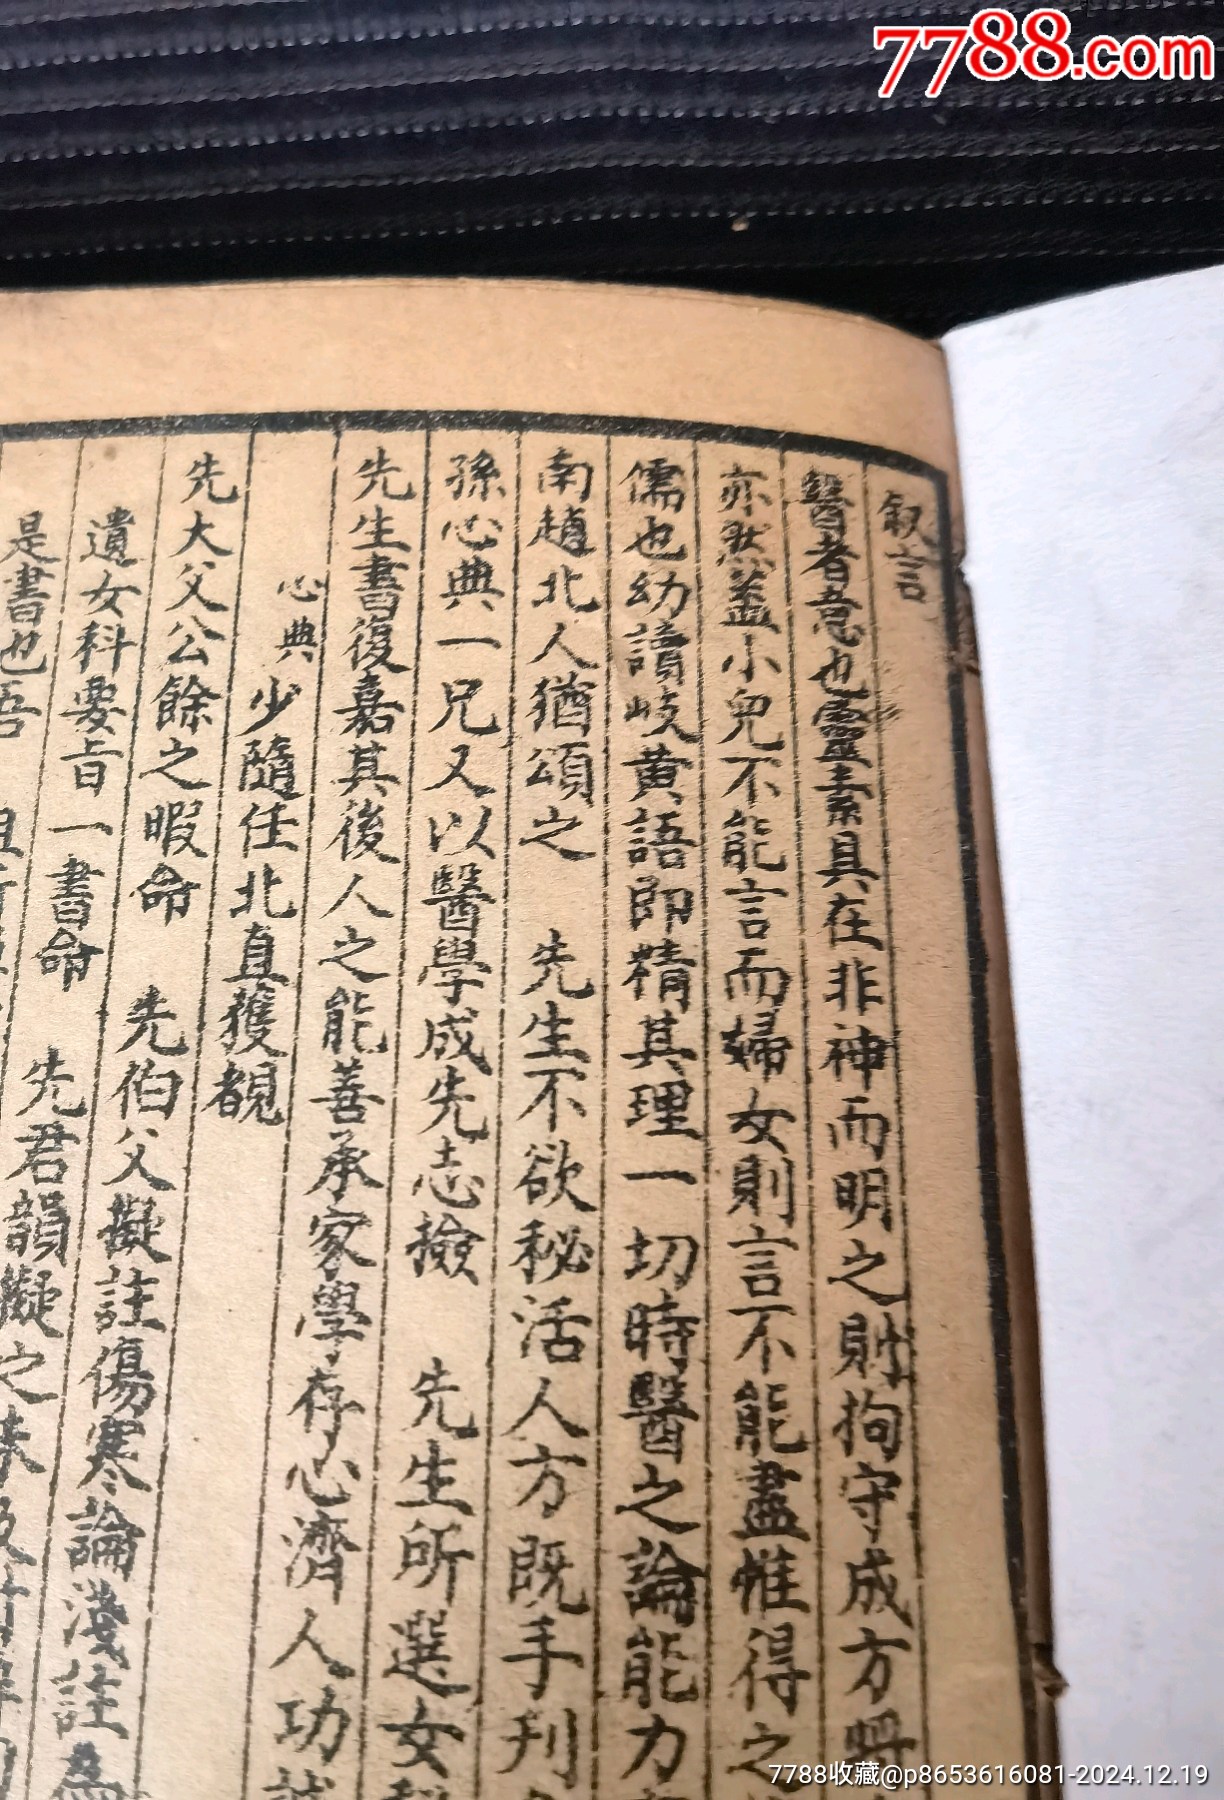 7788.com
叙言
醫者意也靈素具在非神而明之則拘守成方
亦然蓋小兒不能言而婦女則言不能盡惟得之
儒也幼讀岐黃語即精其理一切時醫之論能力
南趙北人猶頌之 先生不欲秘活人方既手刋
孫心典一兄又以醫學成先志撿 先生所選女
先生書復嘉其後人之能善承家學存心濟人功
心典少隨任北直獲覩
先大父公餘之暇命 先伯父擬註傷寒論淺註
遺女科要旨一書命 先君韻擬之
是書也吾
7788收藏@p8653616081-2024.12.19